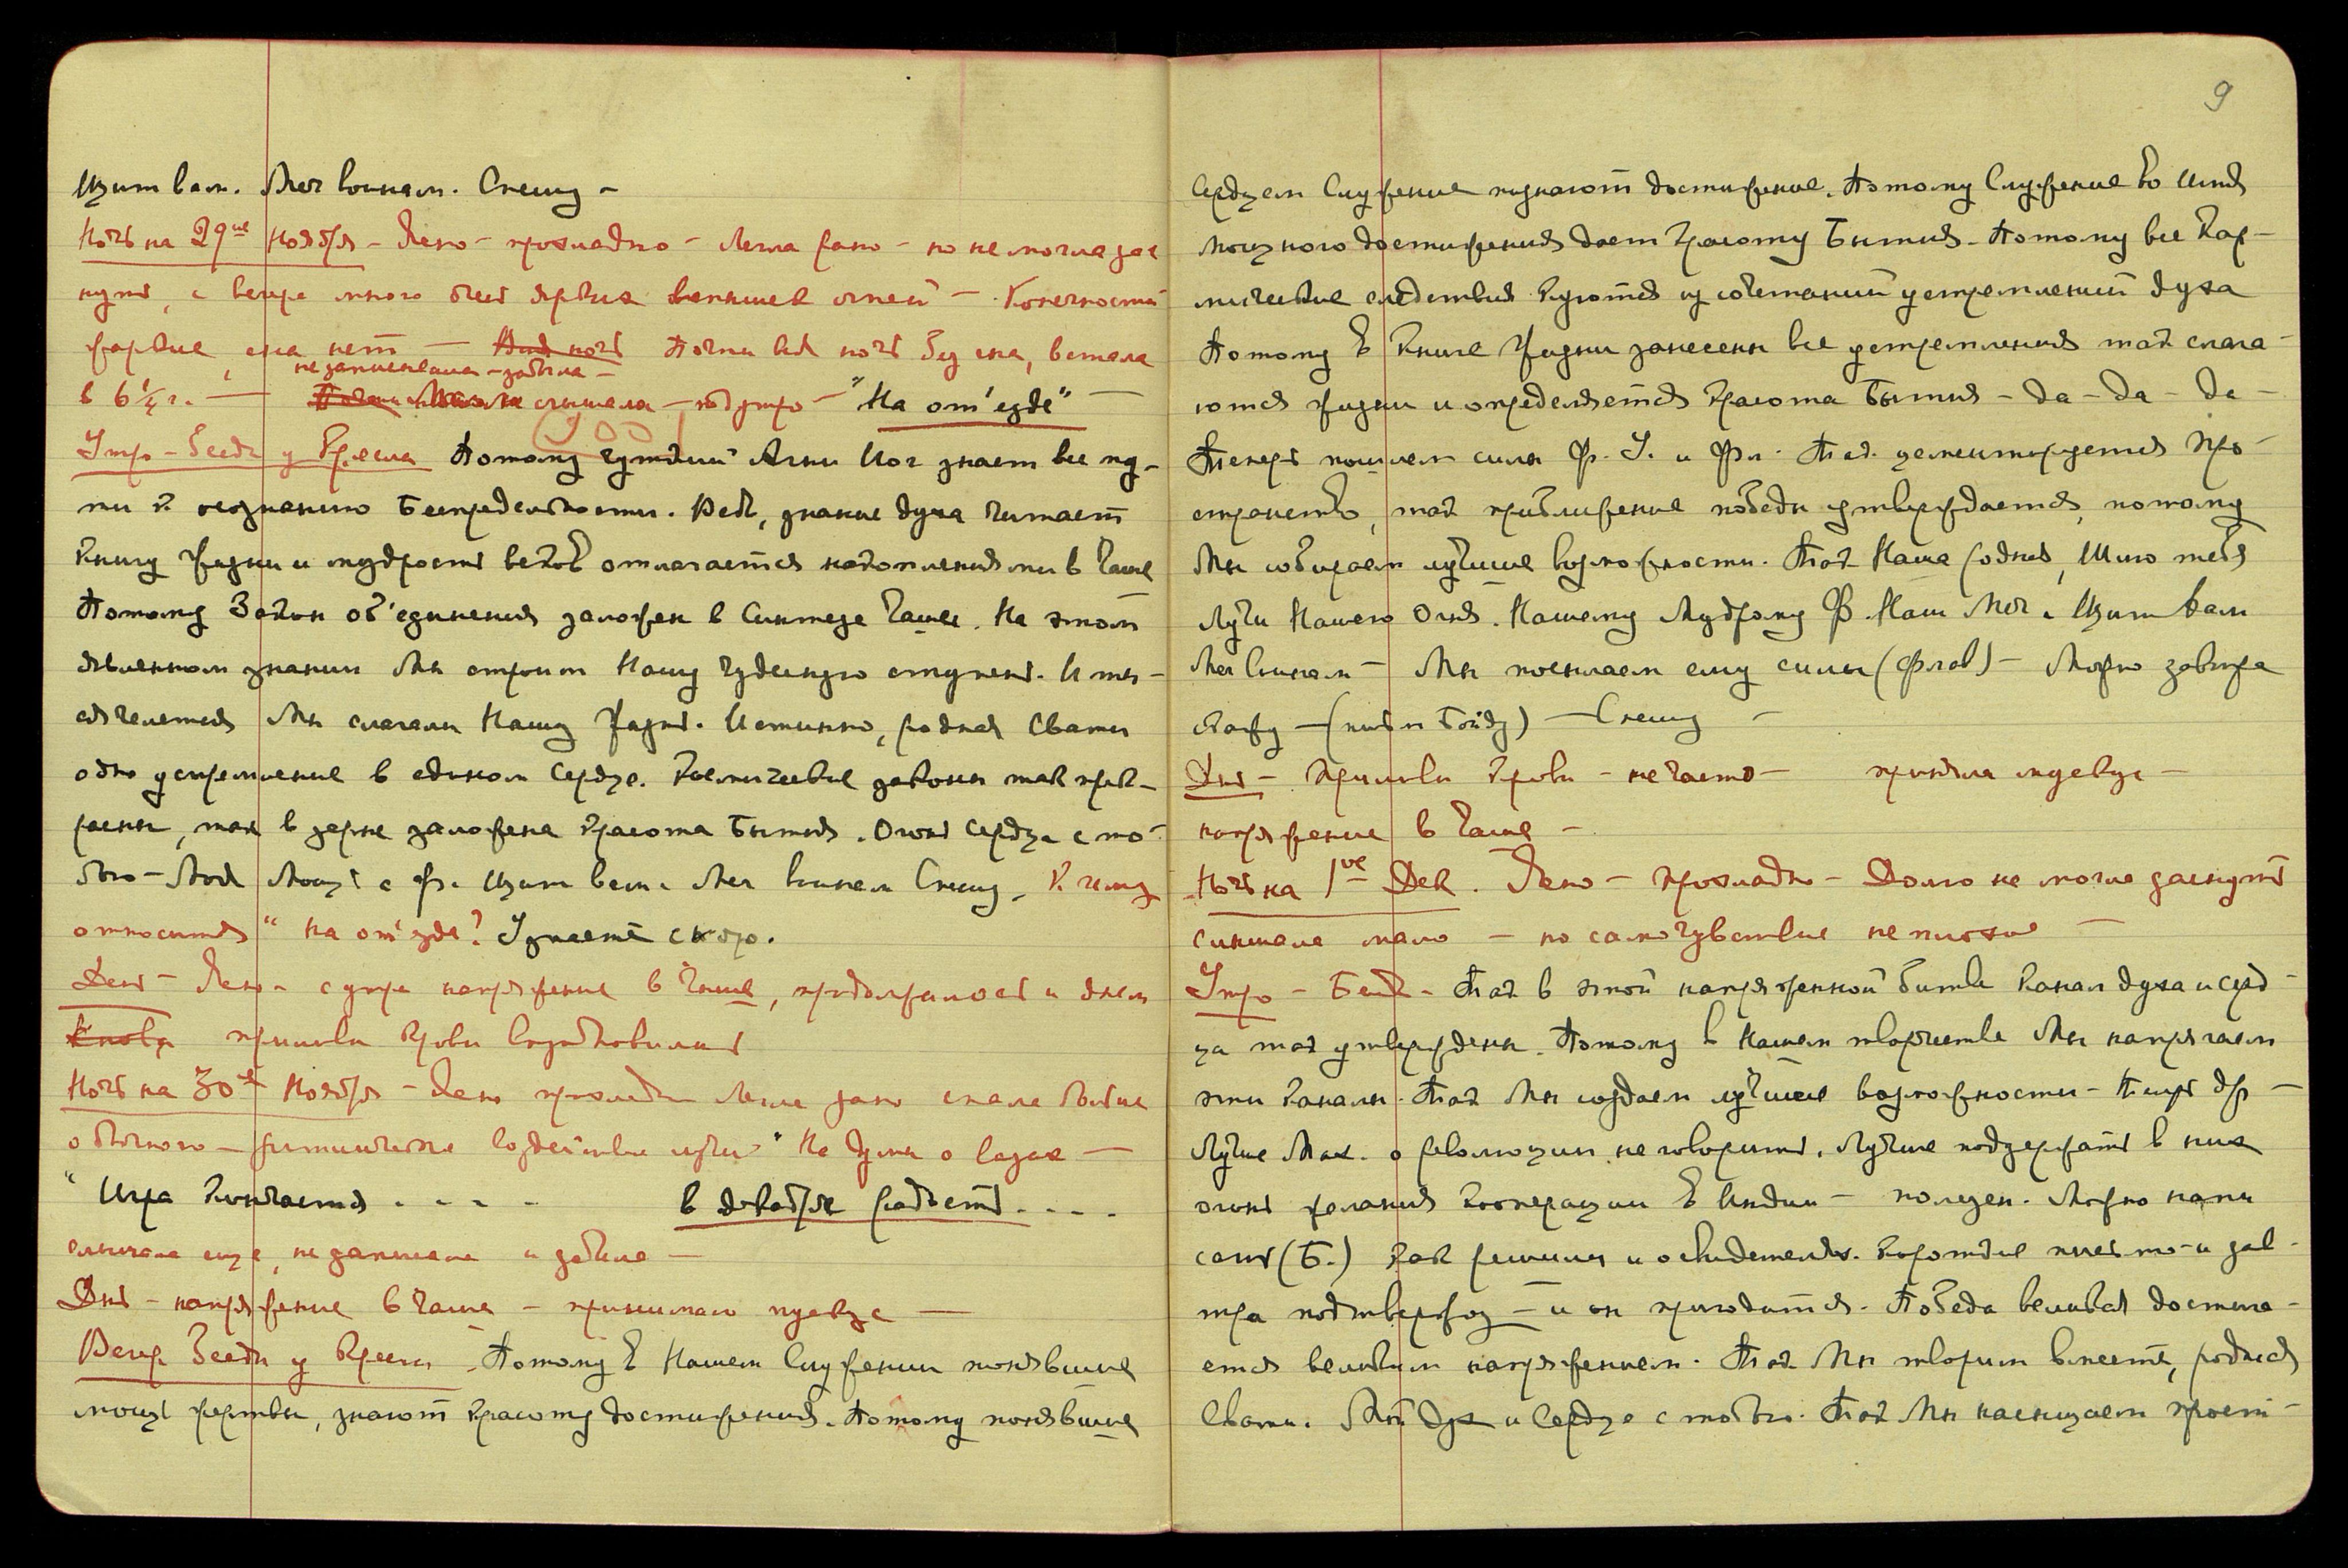 Щит вам. Меч воинам. Спешу –
Ночь на 29ое Ноября – Ясно – прохладно – Легла рано – но не могла зас
нуть, с вечера много было ярких вспышек огней – Конечности
жаркие, сна нет — Почти вся ночь без сна, встала
не записывала – забыла –
в 6½ г. — слышала – под утро – "На от'езде" –
Утро – Беседа у Кресла Потому чуткий Агни Йог знает все пу-
ти к осознанию Беспредельности. Ведь, знание духа читает
Книгу Жизни и мудрость веков отлагается накоплениями в Чаше
Потому Закон об'единения заложен в Синтезе Чаши. На этом
явленном знании Мы строим Нашу чудесную ступень. И ты-
сячелетия Мы слагали Нашу Жизнь. Истинно, родная Свати
одно устремление в едином Сердце. Космические законы так прек-
расны, так в зерне заложена Красота Бытия. Огонь Сердца с то-
бою – Моя Мощь с Ф. Щит вам. Меч воинам Спешу – К чему
относится "На от'езде? Узнаете скоро.
День – Ясно – с утра напряжение в Чаше, продолжалось и днем
приливы крови возобновились
Ночь на 30ое Ноября – Ясно прохладно Легла рано спала больше
обычного – ритмическое воздействие лучей "На думы о вазах —
"Игра кончается . . . . в декабре радость . . . .
слышала еще, не записала и забыла —
Днь – напряжение в Чаше – принимаю мускус —
Вечер Беседа у Кресла – Потому в Нашем Служении понявшие
мощь жертвы, знают красоту достижения. Потому понявшие
9
Сердцем Служение познают достижение. Потому Служение во Имя
мощного достижения дает Красоту Бытия – Потому все Кар-
мические следствия куются из сочетаний устремлений духа
Потому в Книге Жизни занесены все устремления так слага-
ются жизни и определяется Красота Бытия – да – да – да –
Теперь пошлем силы Ф. У. и Фл. Так цементируется про-
странство, так приближение победы утверждается, потому
Мы собираем лучшие возможности. Так Наша родная, Шлю тебе
Лучи Нашего Огня. Нашему Мудрому Ф. Наш Меч. Щит Вам
Меч воинам – Мы посылаем ему силы (Флав) – Можно завтра
— Спешу –
Днь – приливы крови – не часто – приняла мускус –
напряжение в Чаше –
Ночь на 1ое Дек. Ясно – прохладно – Долго не могла заснуть
слышала мало – но самочувствие не плохое —
Утро – Беседа – Так в этой напряженной битве канал духа и серд-
ца так утвержден. Потому в Нашем творчестве Мы напрягаем
эти каналы. Так Мы создаем лучшие возможности –
Лучше Мах. о революции не говорить. Лучше поддержать в них
огонь желания кооперации в Индии – полезен. Можно напи
сать (Б.) как решили и освидетельств. Короткие письмо – и зав-
тра подтвержу – и он пригодится. Победа великая достига-
ется великим напряжением. Так Мы творим вместе, родная
Свати. Мой Дух и Сердце с тобою. Так Мы насыщаем прост-